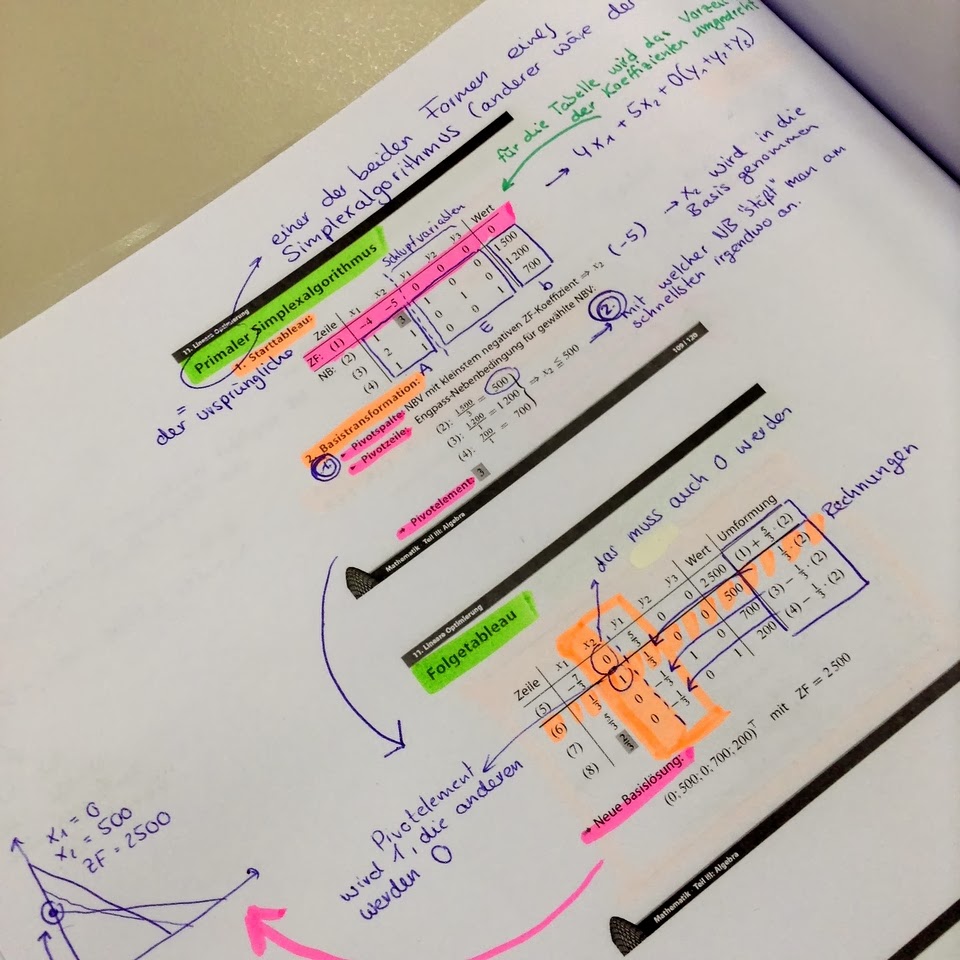 einer der beiden Formen eines
Simplexalgorithmus (anderer wäre der
für die Tabelle wird das
der Koeffizienten umgedreht
→ 4x₁ + 5x₂ + 0(y₁+y₂+y₃)
11. Lineare Optimierung
Primaler Simplexalgorithmus
= der ursprüngliche
1. Starttableau:
Schlupfvariablen
Zeile x₁ x₂ y₁ y₂ y₃ Wert
ZF: (1) −4 −5 0 0 0 0
NB: (2) 1 3 1 0 0 1 500
(3) 2 1 0 1 0 1 200
(4) 1 1 0 0 1 700
A E b
2. Basistransformation:
① Pivotspalte: NBV mit kleinstem negativen ZF-Koeffizient ⇒ x₂ (-5) → x₂ wird in die
Basis genommen
Pivotzeile: Engpass-Nebenbedingung für gewählte NBV: ②
→ mit welcher NB "stößt" man am
schnellsten irgendwo an.
(2): 1.500/3 = 500 ⇒ x₂ ≤ 500
(3): 1.200/1 = 1.200
(4): 700/1 = 700
Pivotelement 3
109 | 120
Mathematik Teil III: Algebra
11. Lineare Optimierung
Folgetableau
das muss auch 0 werden
Rechnungen
Zeile x₁ x₂ y₁ y₂ y₃ Wert Umformung
(5) −7/3 0 5/3 0 0 2 500 (1) + 5/3 · (2)
(6) 1/3 1 1/3 0 0 500 1/3 · (2)
(7) 5/3 0 −1/3 1 0 700 (3) − 1/3 · (2)
(8) 2/3 0 −1/3 0 1 200 (4) − 1/3 · (2)
Pivotelement
wird 1, die anderen
werden 0
Neue Basislösung:
(0; 500; 0; 700; 200)ᵀ mit ZF = 2 500
Mathematik Teil III: Algebra
x₁ = 0
x₂ = 500
ZF = 2500